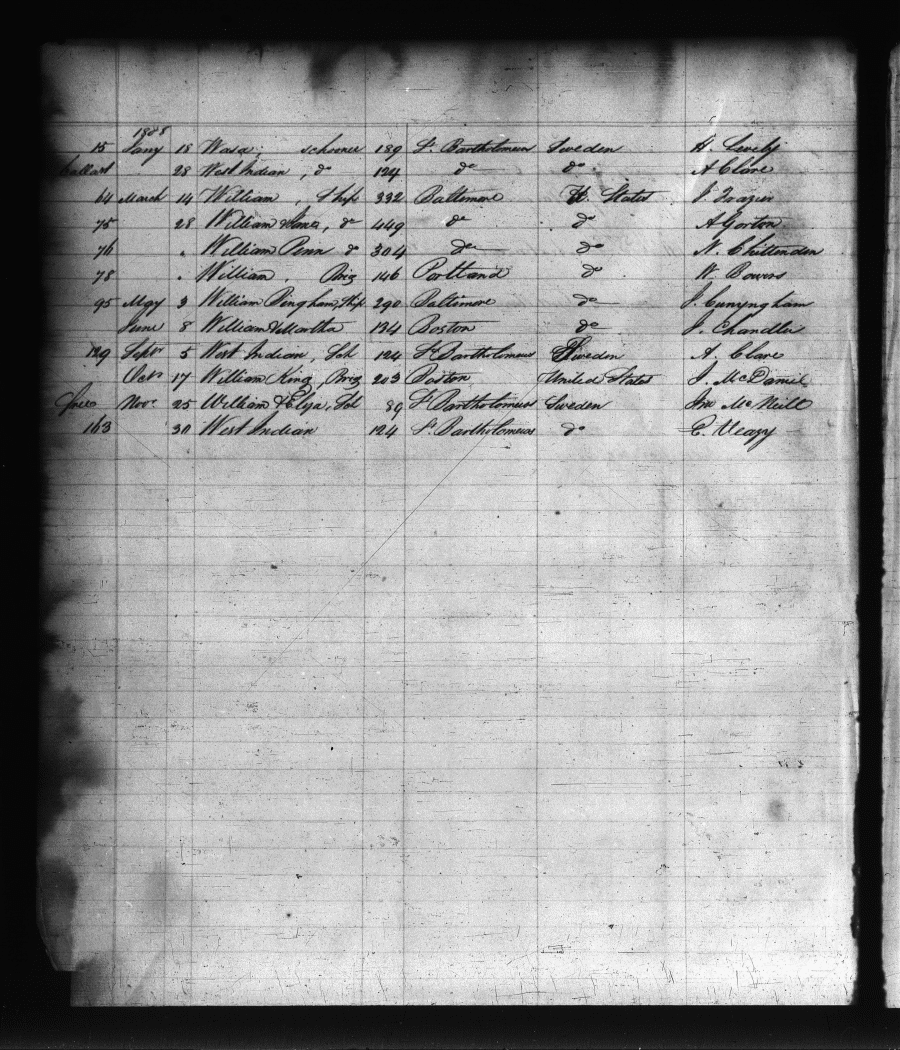 15 Jany 18 Wasa schooner 189 St. Bartholomews Sweden H.
Ballast 28 West Indian, do 124 do do A Clare
64 March 14 William, Ship 332 Baltimore U. States J. Frazier
75 28 William & Jane, do 449 do do A Gorton
76 " William Penn do 304 do do N. Chittenden
78 " William. Brig 146 Portland do W. Bowers
95 May 3 William Bingham, Ship 290 Baltimore do J. Cunyngham
June 8 William & Martha 134 Boston do J. Chandler
129 Septr 5 West Indian, Sch 124 St. Bartholomews Sweden A. Clare
Octr 17 William King, Brig 203 Boston United States J. McDaniel
Novr 25 William & Elyza, Sch 89 St. Bartholomews Sweden Jno McNeill
163 30 West Indian 124 St. Bartholomews do E. Veazy